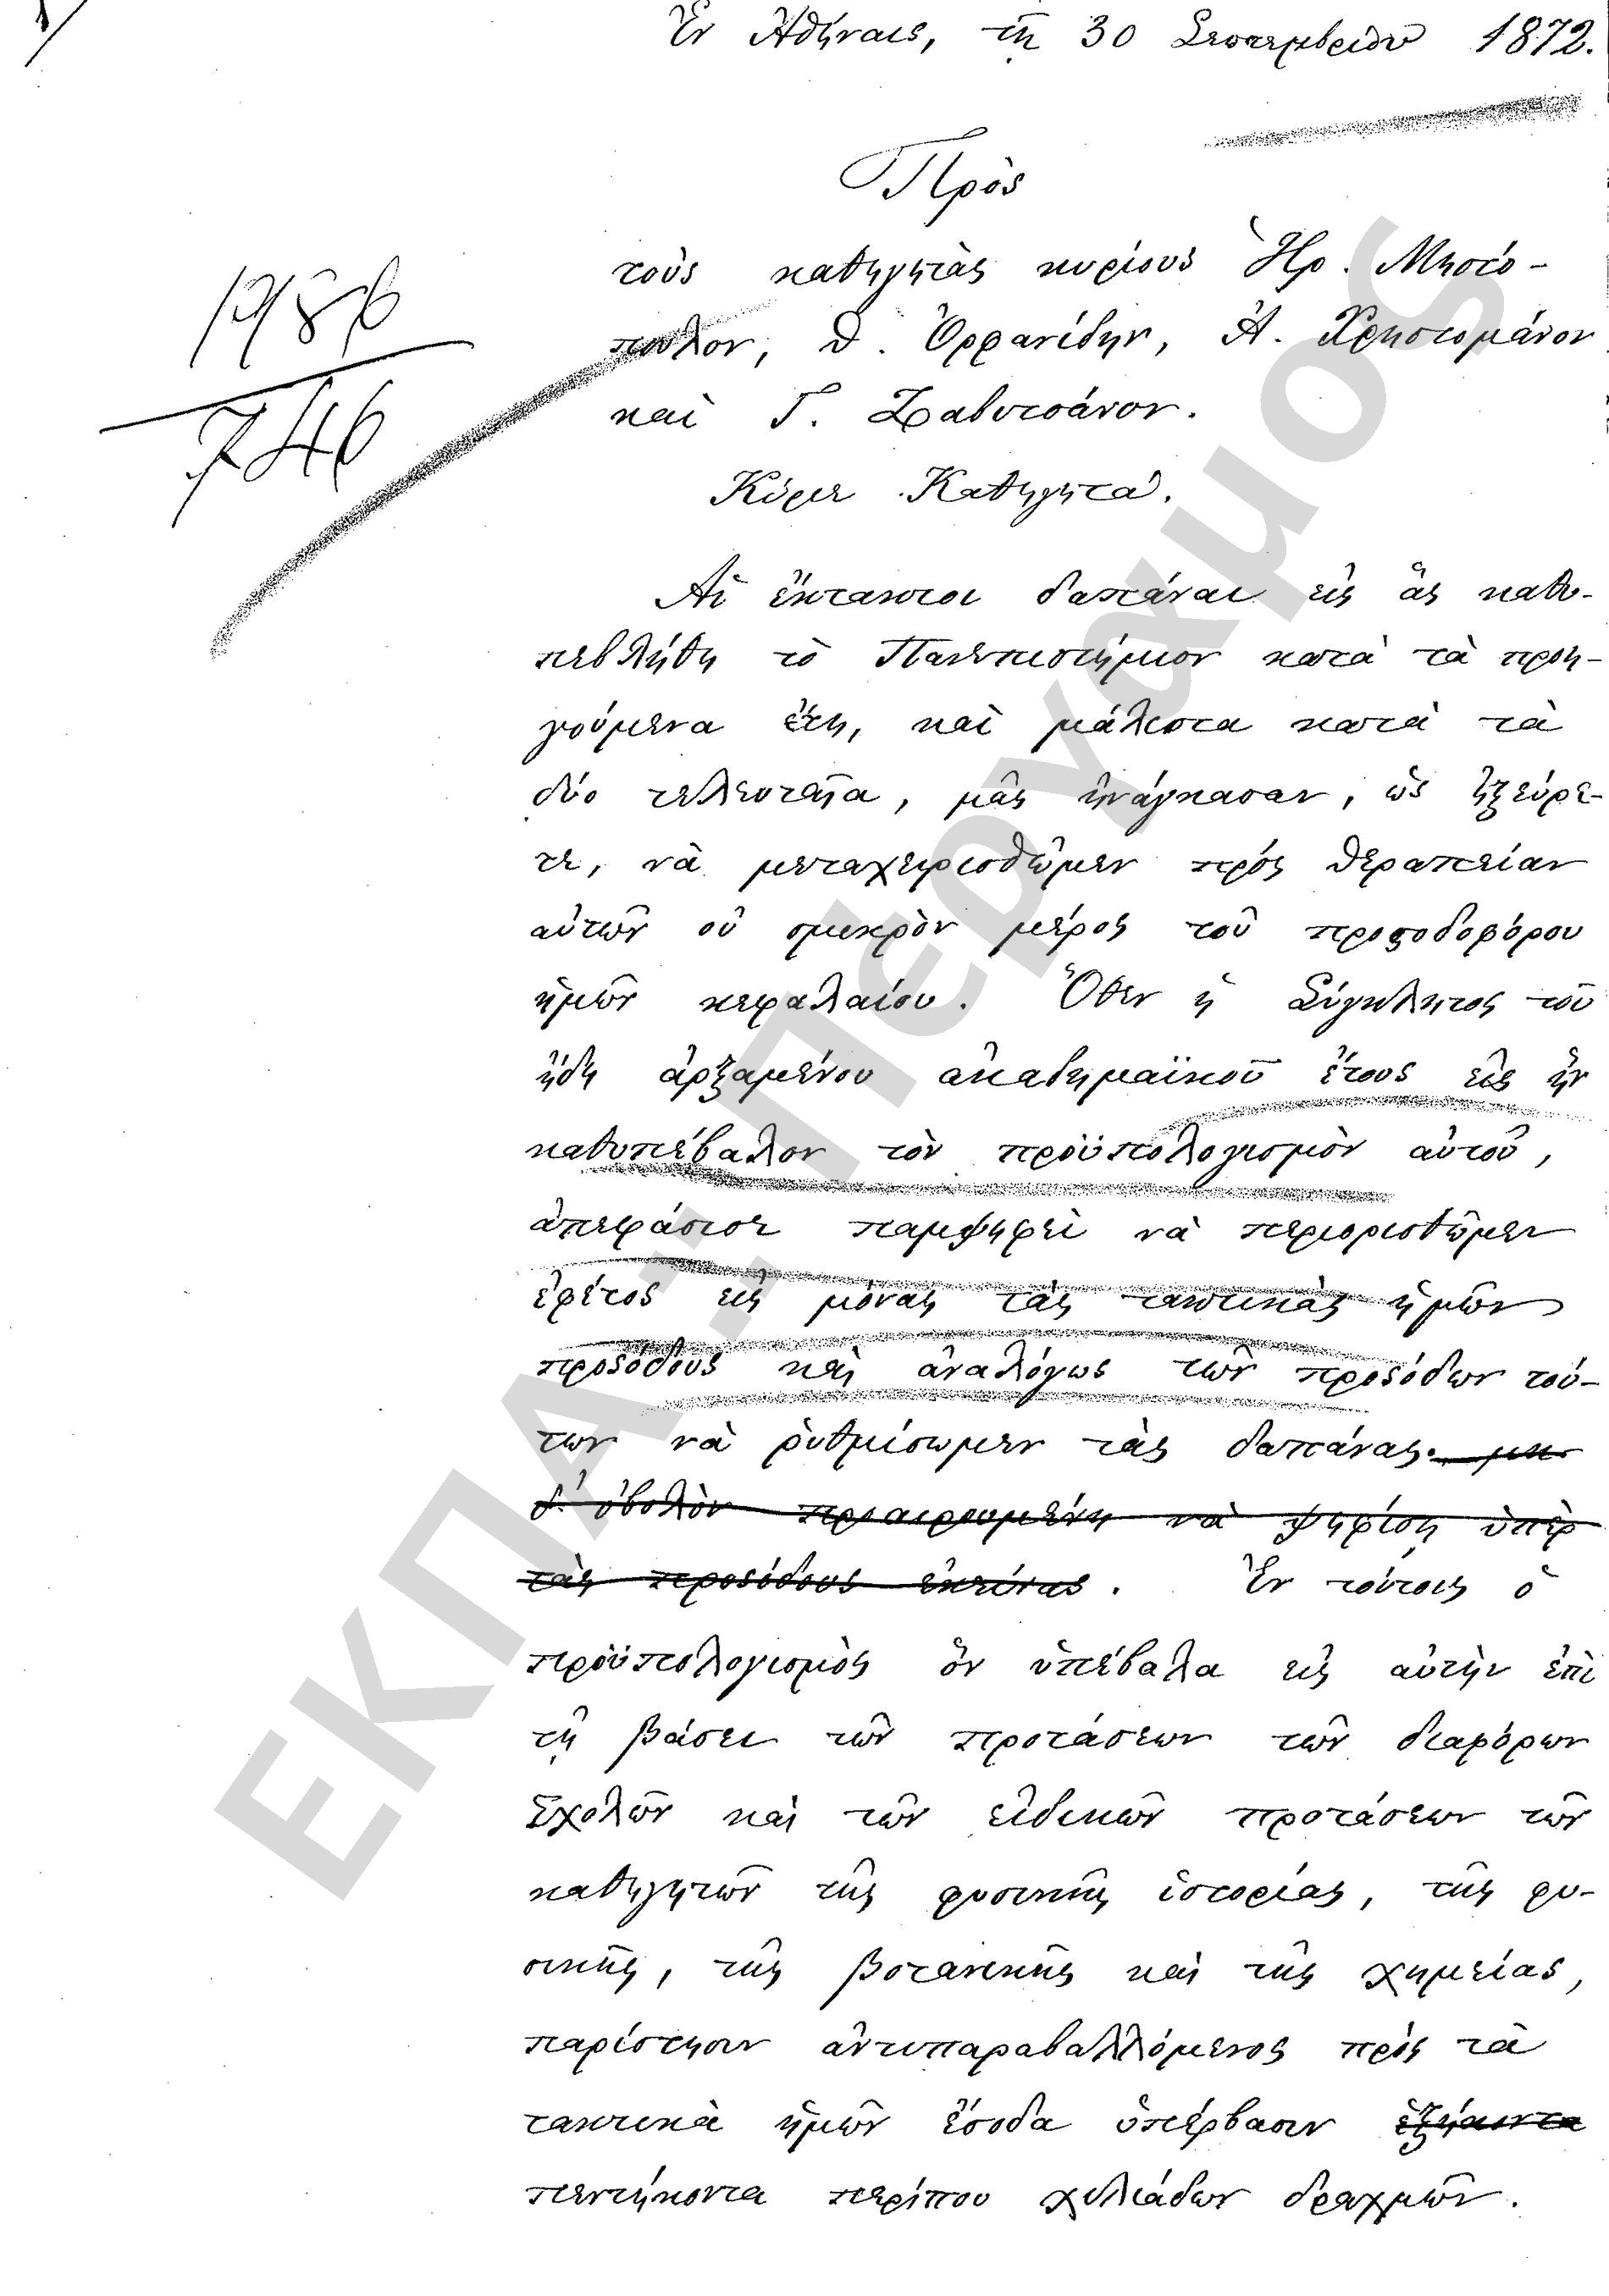 Ἐν Ἀθήναις, τῇ 30 Σεπτεμβρίου 1872.
Πρὸς
τοὺς καθηγητὰς κυρίους Ἡρ. Μητσό-
πουλον, Θ. Ὀρφανίδην, Ἀ. Χρηστομάνον
καὶ Γ. Ζαβιτσάνον.
1986
746
Κύριε Καθηγητά.
Αἱ ἔκτακτοι δαπάναι εἰς ἃς καθυ-
πεβλήθη τὸ Πανεπιστήμιον κατὰ τὰ προη-
γούμενα ἔτη, καὶ μάλιστα κατὰ τὰ
δύο τελευταῖα, μᾶς ἠνάγκασαν, ὡς ἠξεύρε-
τε, νὰ μεταχειρισθῶμεν πρὸς θεραπείαν
αὐτῶν οὐ σμικρὸν μέρος τοῦ προςοδοφόρου
ἡμῶν κεφαλαίου. Ὅθεν ἡ Σύγκλητος τοῦ
ἤδη ἀρξαμένου ἀκαδημαϊκοῦ ἔτους εἰς ἣν
καθυπέβαλον τὸν προϋπολογισμὸν αὐτοῦ,
ἀπεφάσισε παμψηφεὶ νὰ περιορισθῶμεν
ἐφέτος εἰς μόνας τὰς τακτικὰς ἡμῶν
προςόδους καὶ ἀναλόγως τῶν προςόδων τού-
των νὰ ῥυθμίσωμεν τὰς δαπάνας. μη-
δ' ὀβολὸν προαιρουμένη νὰ ψηφίσῃ ὑπὲρ
τὰς προςόδους ἐκείνας. Ἐν τούτοις ὁ
προϋπολογισμὸς ὃν ὑπέβαλα εἰς αὐτὴν ἐπὶ
τῇ βάσει τῶν προτάσεων τῶν διαφόρων
Σχολῶν καὶ τῶν εἰδικῶν προτάσεων τῶν
καθηγητῶν τῆς φυσικῆς ἱστορίας, τῆς φυ-
σικῆς, τῆς βοτανικῆς καὶ τῆς χημείας,
παρίστησιν ἀντιπαραβαλλόμενος πρὸς τὰ
τακτικὰ ἡμῶν ἔσοδα ὑπέρβασιν ἑξήκοντα
πεντήκοντα περίπου χιλιάδων δραχμῶν.
ΕΚΠΑ - Πέργαμος